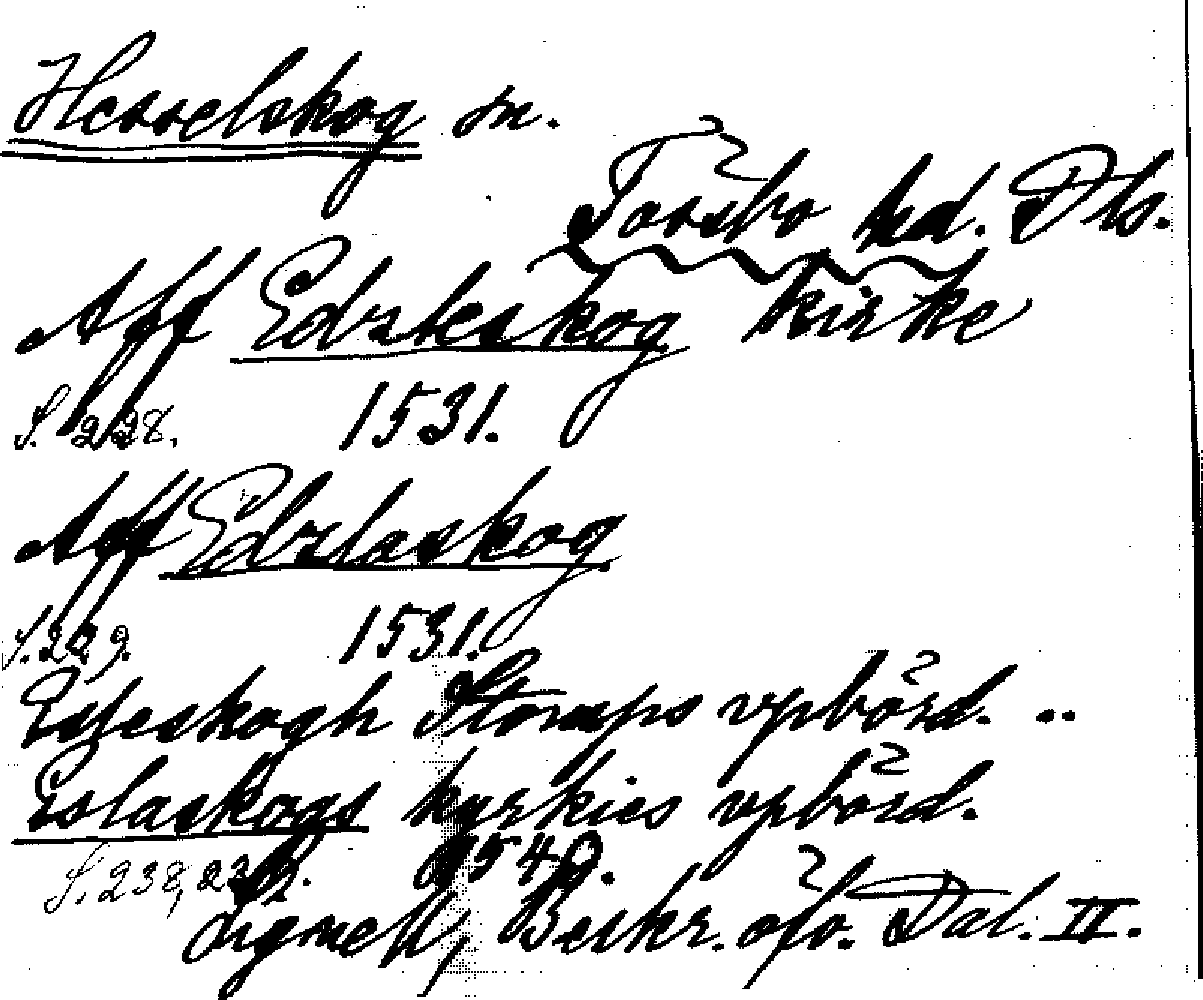 Hesselskog sn.
Tössbo hd. Dls.
Aff Edzleskog kirke
S. 228. 1531.
Aff Edzlaskog
S. 229. 1531.
Esleskogh Stomps vpbörd. ..
Eslaskogs kyrkies vpbörd.
S. 238, 239. 1540.
Lignell, Beskr. öfv. Dal. II.